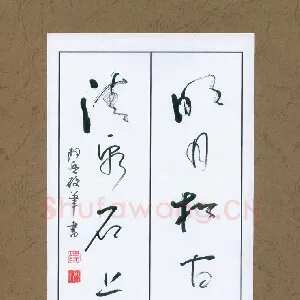 明月松间
清泉石上
書
Shufawang.CN